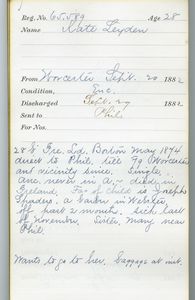 Reg. No. 65,589 Age 28
Name Kate Leyden
From Worcester Sept. 20 188
Condition, Enc.
Discharged Sept. 29 188
Sent to Phil.
For Nos.
28 S. Ire. Ld. Boston May 1874
direct to Phil. till 79 Worcester
and vicinity since. Single.
anc. never in A. died in
Ireland. Fa. of child is Joseph
a in Webster
off past 2 months. sick last
of November. Sister, Mary near
Phil.
Wants to go to her. Baggage at